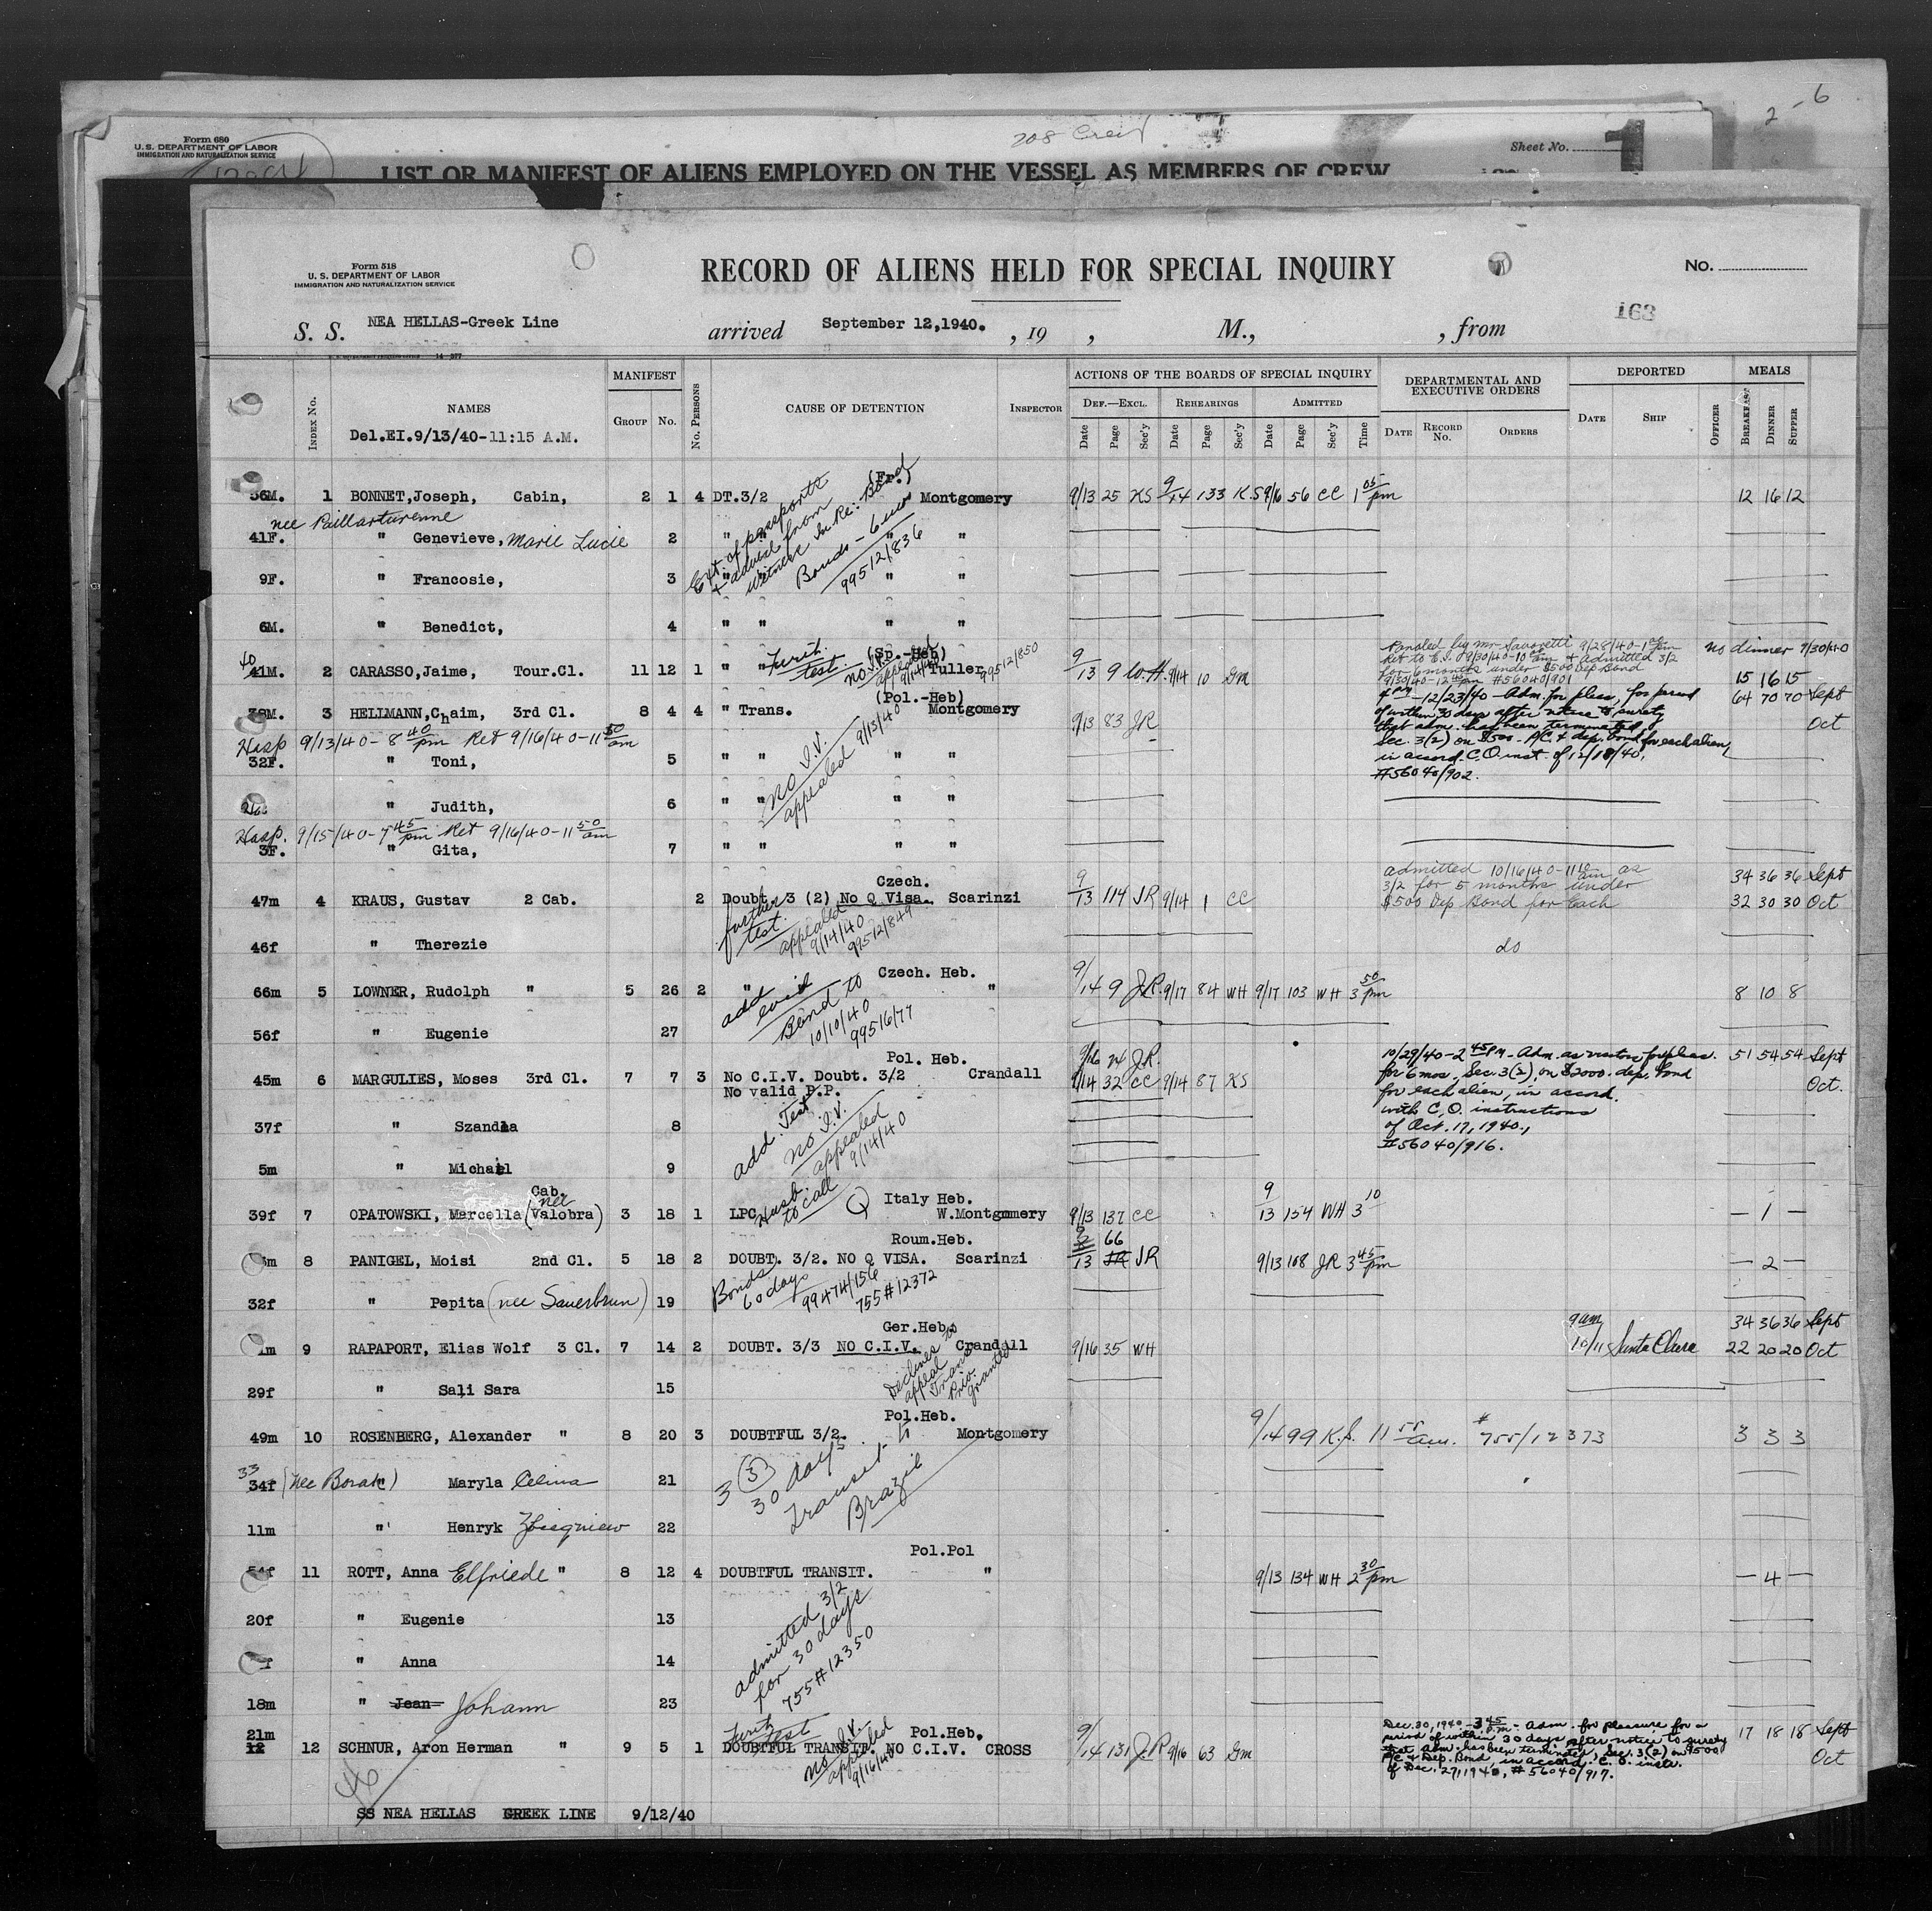 2-6
208 Crew
Form 680
U. S. DEPARTMENT OF LABOR
IMMIGRATION AND NATURALIZATION SERVICE
Sheet No.
1
LIST OR MANIFEST OF ALIENS EMPLOYED ON THE VESSEL AS MEMBERS OF CREW
Form 518
U. S. DEPARTMENT OF LABOR
IMMIGRATION AND NATURALIZATION SERVICE
RECORD OF ALIENS HELD FOR SPECIAL INQUIRY
No.
163
S. S. NEA HELLAS-Greek Line arrived September 12,1940. , 19 , M., , from
14 577
MANIFEST ACTIONS OF THE BOARDS OF SPECIAL INQUIRY DEPARTMENTAL AND EXECUTIVE ORDERS DEPORTED MEALS
Index No. NAMES Group No. No. Persons CAUSE OF DETENTION Inspector Def.—Excl. Rehearings Admitted
Date Page Sec'y Date Page Sec'y Date Page Sec'y Time Date Record No. Orders Date Ship Officer Breakfast Dinner Supper
Del.EI.9/13/40-11:15 A.M.
(Fr.)
56M. 1 BONNET,Joseph, Cabin, 2 1 4 DT.3/2 Montgomery 9/13 25 KS 9/14 133 KS 9/16 56 CC 1 05 pm 12 16 12
nee Paillarturenne
41F. " Genevieve, Marie Lucie 2 " " " "
Ext. of passports
+ advise from
witness In Re: Bond
Bonds - 6 mos
99512/836
9F. " Francosie, 3 " " " "
6M. " Benedict, 4 " " " "
(Sp.-Heb)
40
41M. 2 CARASSO,Jaime, Tour.Cl. 11 12 1 " " Tuller 9/13 9 W.H. 9/14 10 Gm 15 16 15
Furth. test.
No I.V.
appealed
9/14/40
99512/850
Paroled by Mr Savoretti 9/28/40-1 pm
Ret to E.I. 9/30/40-10 am + admitted 3/2
for 6 months under $500 Dep Bond
9/30/40-12 pm #56040/901
no dinner 9/30/40
(Pol.-Heb)
38M. 3 HELLMANN,Chaim, 3rd Cl. 8 4 4 " Trans. Montgomery 9/13 83 JR 64 70 70 Sept
Oct
4 pm-12/23/40-Adm. for pleas, for period
of within 30 days after notice to surety
that adm. has been terminated
Sec. 3(2) on $500. P/C & dep. bond for each alien,
in accord. C.O. inst. of 12/18/40,
#56040/902.
Hosp 9/13/40-8 40 pm Ret 9/16/40-11 50 am
32F. " Toni, 5 " " " "
No I.V.
appealed 9/13/40
" Judith, 6 " " " "
Hosp. 9/15/40-7 45 pm Ret 9/16/40-11 50 am
3F. " Gita, 7 " " " "
Czech.
47m 4 KRAUS, Gustav 2 Cab. 2 Doubt 3 (2) No Q Visa. Scarinzi 9/13 114 JR 9/14 1 CC 34 36 36 Sept
32 30 30 Oct
admitted 10/16/40-11 10 am as
3/2 for 5 months under
$500 Dep Bond for Each
further
test.
appealed
9/14/40
99512/849
46f " Therezie do
Czech. Heb.
66m 5 LOWNER, Rudolph " 5 26 2 " " 9/14 9 J.R. 9/17 84 WH 9/17 103 WH 3 50 pm 8 10 8
add
evid
Bond to
10/10/40
99516/77
56f " Eugenie 27
Pol. Heb.
45m 6 MARGULIES, Moses 3rd Cl. 7 7 3 No C.I.V. Doubt. 3/2 Crandall 9/14 32 CC 9/14 87 KS 51 54 54 Sept
No valid P.P. Oct.
10/29/40-2 45 PM-Adm. as visitors for pleas.
for 6 mos, Sec. 3(2), on $2000. dep. bond
for each alien, in accord.
with C.O. instructions
of Oct. 17, 1940.,
#56040/916.
37f " Szandla 8
add. Test
No I.V.
appealed
9/14/40
5m " Michael 9
Cab.
39f 7 OPATOWSKI, Marcella (nee Valobra) 3 18 1 LPC Q Italy Heb. W.Montgomery 9/13 137 CC 9/13 154 WH 3 10 — 1 —
Husb.
to call
Roum.Heb.
8 PANIGEL, Moisi 2nd Cl. 5 18 2 DOUBT. 3/2. NO Q VISA. Scarinzi 9/13 66 JR 9/13 168 JR 3 45 pm — 2 —
Bonds
60 days
99474/156
755#12372
32f " Pepita (nee Sauerbrun) 19
Ger.Heb.
9 RAPAPORT, Elias Wolf 3 Cl. 7 14 2 DOUBT. 3/3 NO C.I.V. Crandall 9/16 35 WH 9 am 10/11 Santa Clara 34 36 36 Sept
22 20 20 Oct
Declines to
appeal
Trans
Priv.
granted
29f " Sali Sara 15
Pol.Heb.
49m 10 ROSENBERG, Alexander " 8 20 3 DOUBTFUL 3/2. Montgomery 9/14 99 K.S. 11 55 am. #755/12373 3 3 3
3 (3)
30 days
Transit to
Brazil
33
34f (nee Borak) " Maryla Celina 21
11m " Henryk Zbigniew 22
Pol.Pol
11 ROTT, Anna Elfriede " 8 12 4 DOUBTFUL TRANSIT. " 9/13 134 WH 2 30 pm — 4 —
20f " Eugenie 13
admitted 3/2
for 30 days
755#12350
" Anna 14
18m " Jean Johann 23
21m
12 12 SCHNUR, Aron Herman " 9 5 1 DOUBTFUL TRANSIT. NO C.I.V. Pol.Heb. CROSS 9/14 131 J.R 9/16 63 Gm 17 18 18 Sept
Oct
Furth
Test
No I.V.
appealed
9/16/40
Dec. 30, 1940-3 45 p.m.-Adm. for pleasure for a
period of within 30 days after notice to surety
that adm. has been terminated, Sec. 3(2) on $500
P/C & Dep. Bond in accord. C.O. instr.
of Dec. 27, 1940, #56040/917.
SS NEA HELLAS GREEK LINE 9/12/40